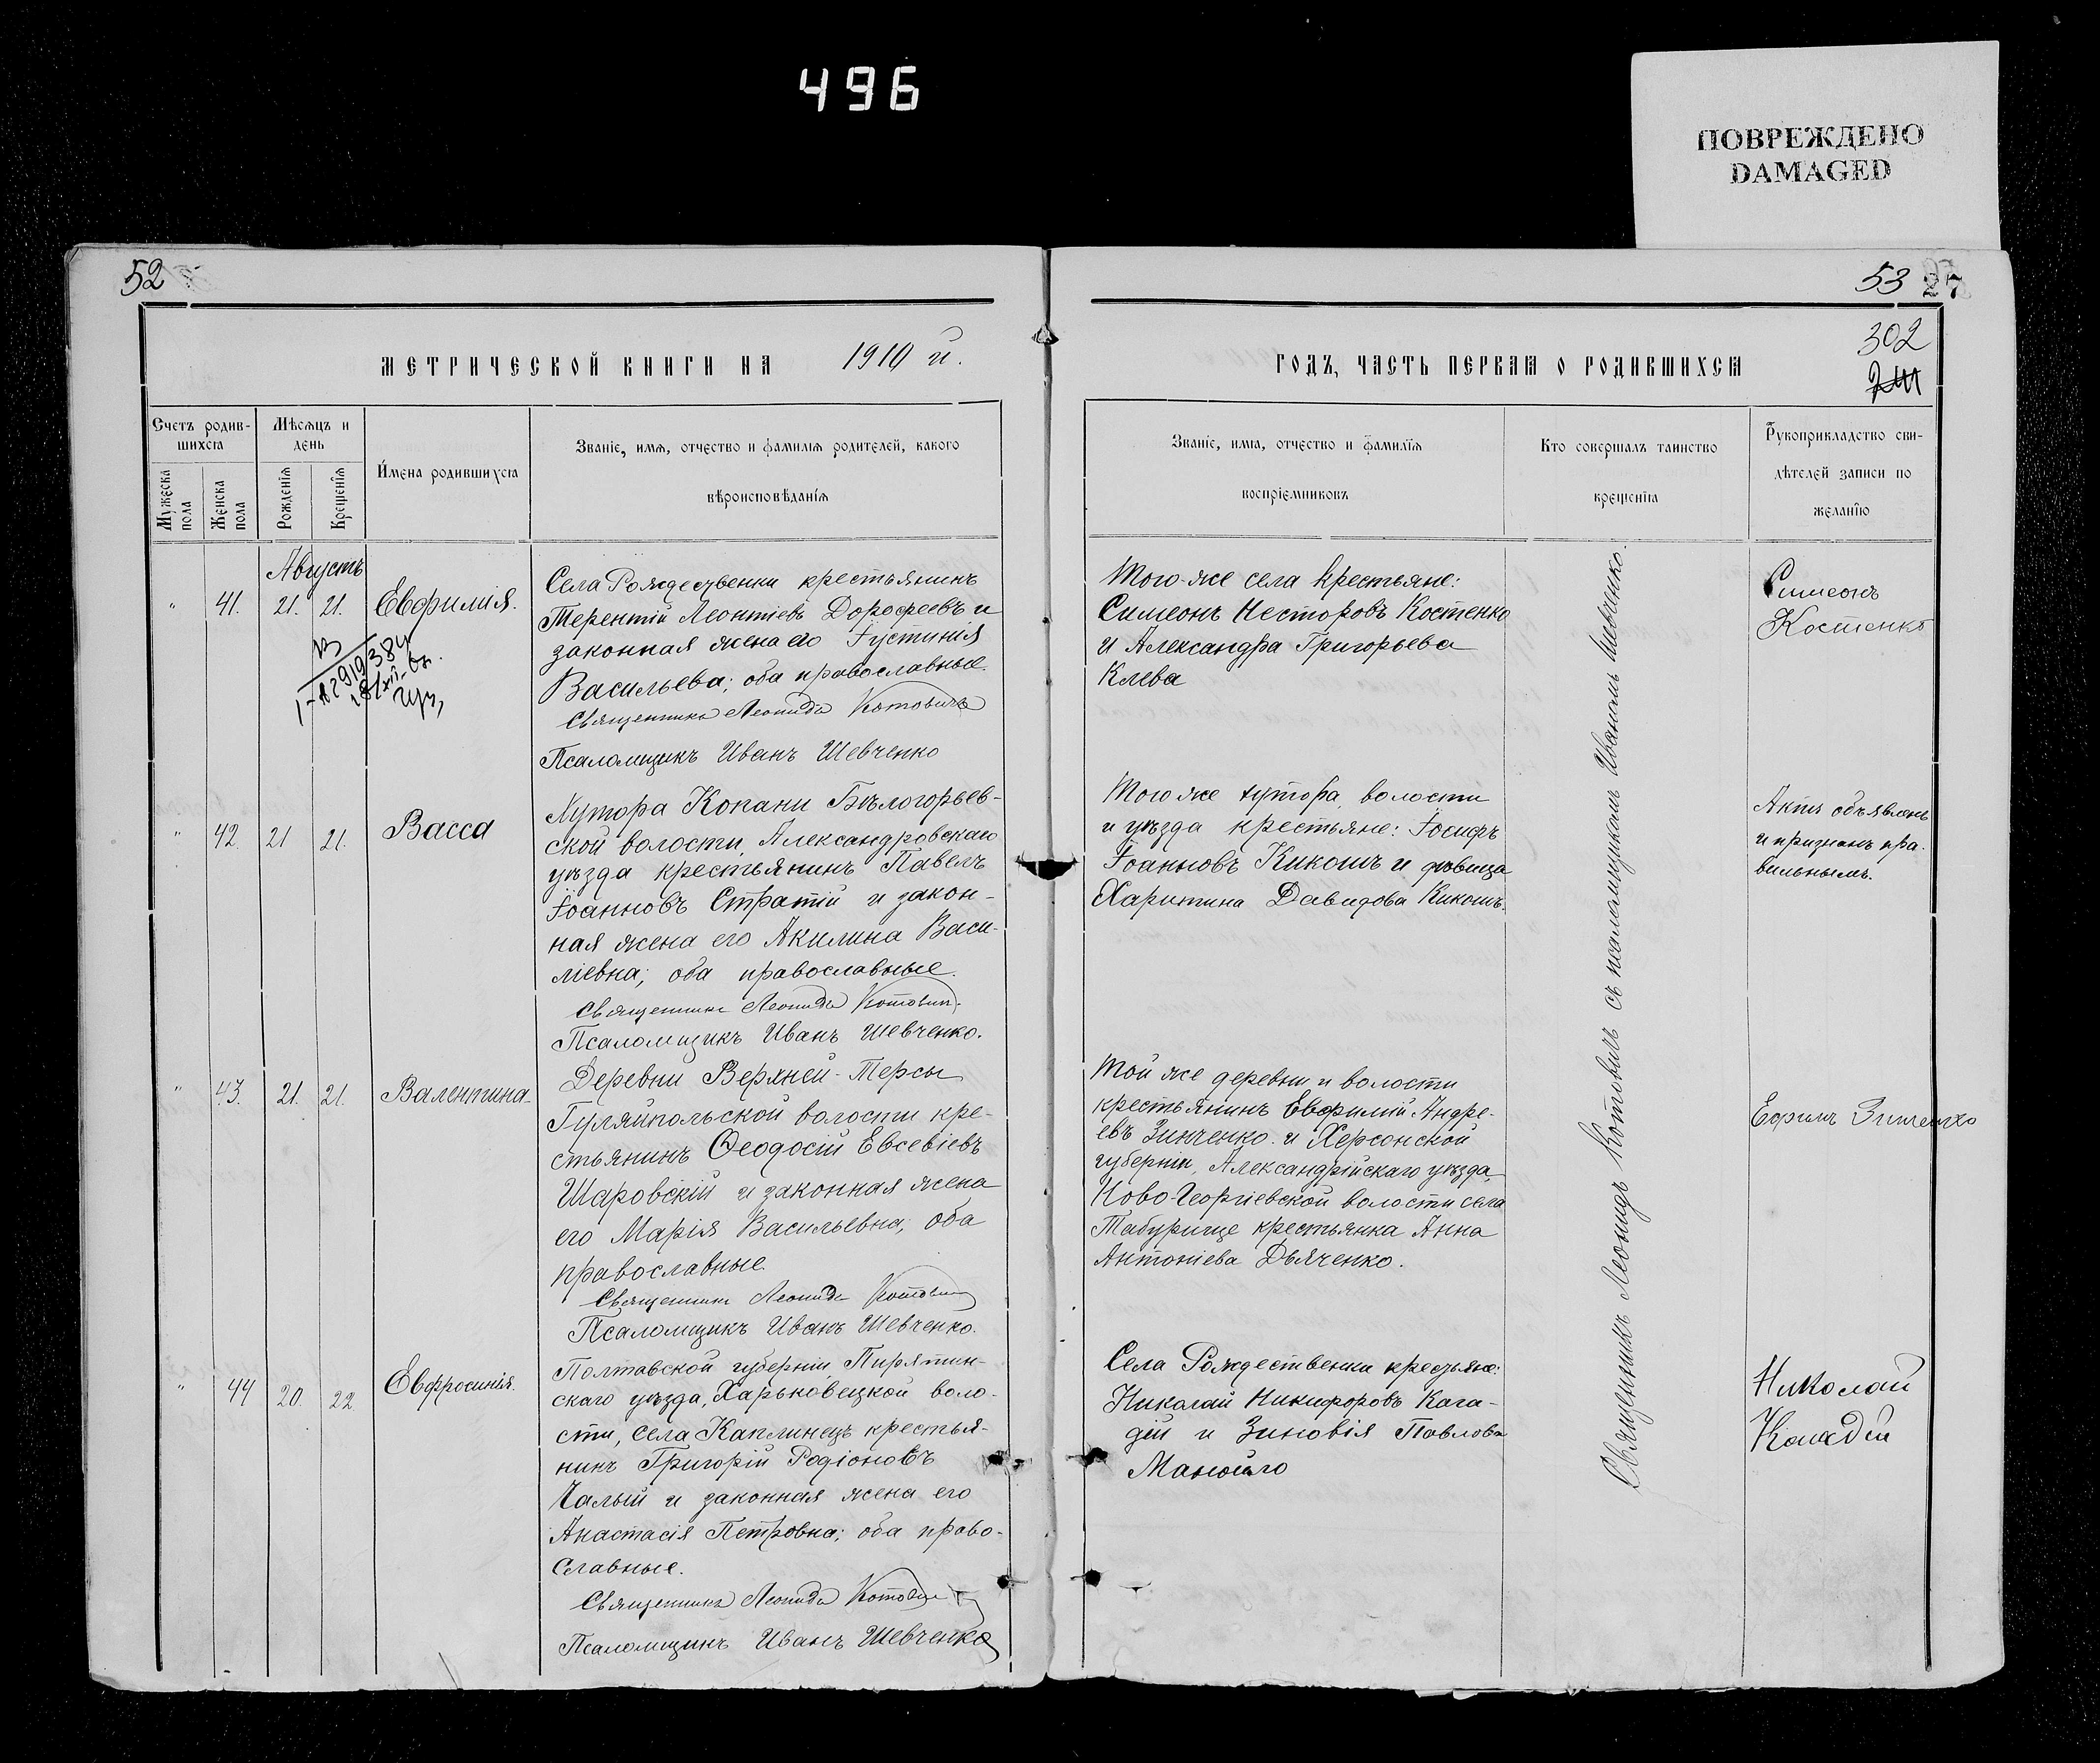 496
ПОВРЕЖДЕНО
DAMAGED
52
53 27
302
МЕТРИЧЕСКОЙ КНИГИ НА 1910 й.
ГОДЪ, ЧАСТЬ ПЕРВАЯ О РОДИВШИХСЯ
Счетъ родив-
шихся
Мужеска
пола
Женска
пола
Мѣсяцъ и
день
Рожденія
Крещенія
Имена родившихся
Званіе, имя, отчество и фамилія родителей, какого
вѣроисповѣданія
Званіе, имя, отчество и фамилія
воспріемниковъ
Кто совершалъ таинство
крещенія
Рукоприкладство сви-
дѣтелей записи по
желанію
Августъ
" 41. 21. 21. Евфимія.
Села Рождественки крестьянинъ
Терентій Леонтіевъ Дорофеевъ и
законная жена его Іустинія
Васильева; оба православные.
Священникъ Леонидъ Котовичъ
Псаломщикъ Иванъ Шевченко
Того-же села крестьяне:
Симеонъ Несторовъ Костенко
и Александра Григорьева
Клева
Симеонъ
Костенко
" 42. 21 21. Васса
Хутора Копани Бѣлогорьев-
ской волости, Александровскаго
уѣзда крестьянинъ Павелъ
Іоанновъ Стратій и закон-
ная жена его Акилина Васи-
ліевна; оба православные.
Священникъ Леонидъ Котович
Псаломщикъ Иванъ Шевченко.
Того же хутора, волости
и уѣзда крестьяне: Іосифъ
Іоанновъ Кикошъ и дѣвица
Харитина Давидова Кикошъ.
Актъ объявленъ
и признанъ пра-
вильнымъ.
" 43. 21. 21. Валентина
Деревни Верхней-Терсы
Гуляйпольской волости кре-
стьянинъ Ѳеодосій Евсевіевъ
Шаровскій и законная жена
его Марія Васильевна; оба
православные.
Священникъ Леонидъ Котович
Псаломщикъ Иванъ Шевченко.
Той же деревни и волости
крестьянинъ Евфимій Андре-
евъ Зинченко и Херсонской
губерніи, Александрійскаго уѣзда,
Ново-Георгіевской волости села
Табурище крестьянка Анна
Антоніева Дьяченко.
Ефимъ Зинченко
" 44 20. 22 Евфросинія.
Полтавской губерніи, Пирятин-
скаго уѣзда, Харьковецкой воло-
сти, села Каплинецъ крестья-
нинъ Григорій Родіоновъ
Чалый и законная жена его
Анастасія Петровна; оба право-
славные.
Священникъ Леонидъ Котович
Псаломщикъ Иванъ Шевченко
Села Рождественки крестьяне:
Николай Никифоровъ Кага-
дій и Зиновія Павлова
Манойло
Николай
Кагадій
Священникъ Леонидъ Котовичъ съ псаломщикомъ Иваномъ Шевченко.